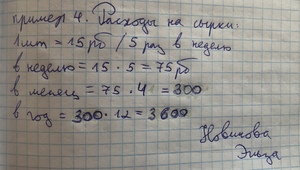 пример 4. Расходы на сырки:
1 шт = 15 рб / 5 раз в неделю
в неделю = 15 · 5 = 75 рб
в месяц = 75 · 4 = 300
в год = 300 · 12 = 3600
Новикова
Эльза